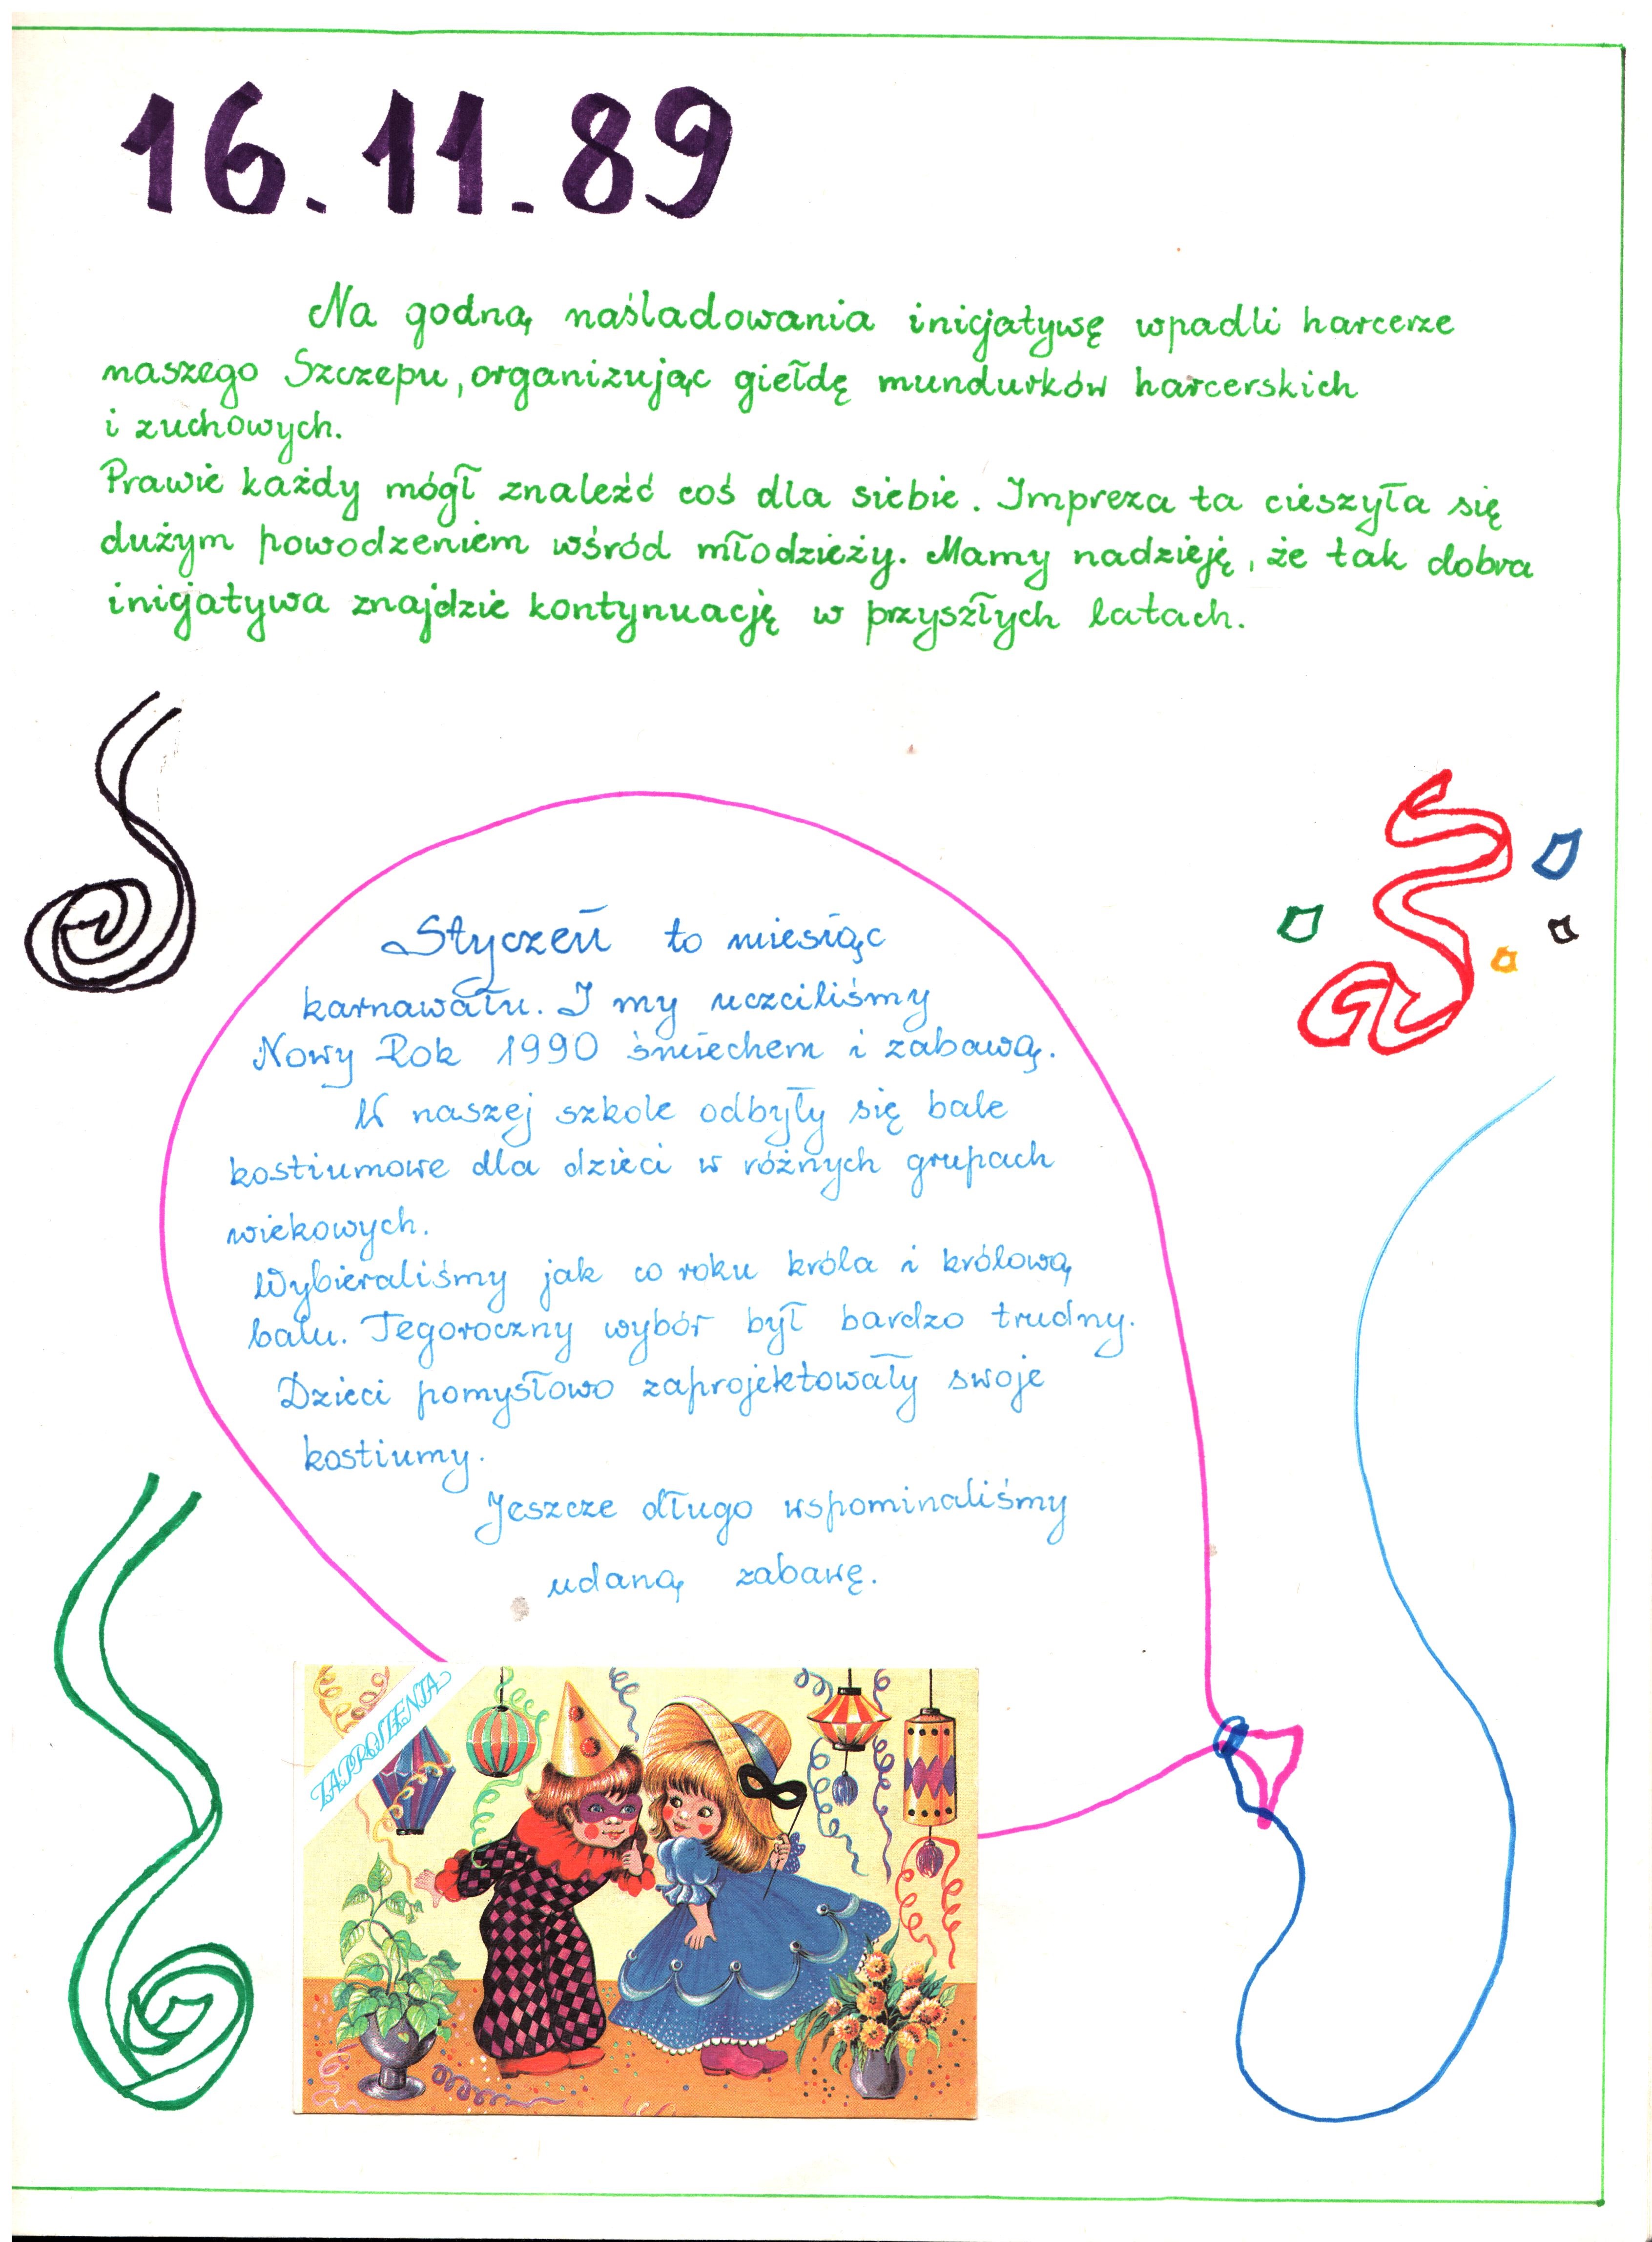 16.11.89
Na godną naśladowania inicjatywę wpadli harcerze
naszego Szczepu, organizując giełdę mundurków harcerskich
i zuchowych.
Prawie każdy mógł znaleźć coś dla siebie. Impreza ta cieszyła się
dużym powodzeniem wśród młodzieży. Mamy nadzieję, że tak dobra
inicjatywa znajdzie kontynuację w przyszłych latach.
Styczeń to miesiąc
karnawału. I my uczciliśmy
Nowy Rok 1990 śmiechem i zabawą.
W naszej szkole odbyły się bale
kostiumowe dla dzieci w różnych grupach
wiekowych.
Wybieraliśmy jak co roku króla i królową
balu. Tegoroczny wybór był bardzo trudny.
Dzieci pomysłowo zaprojektowały swoje
kostiumy.
Jeszcze długo wspominaliśmy
udaną zabawę.
ZAPROSZENIA